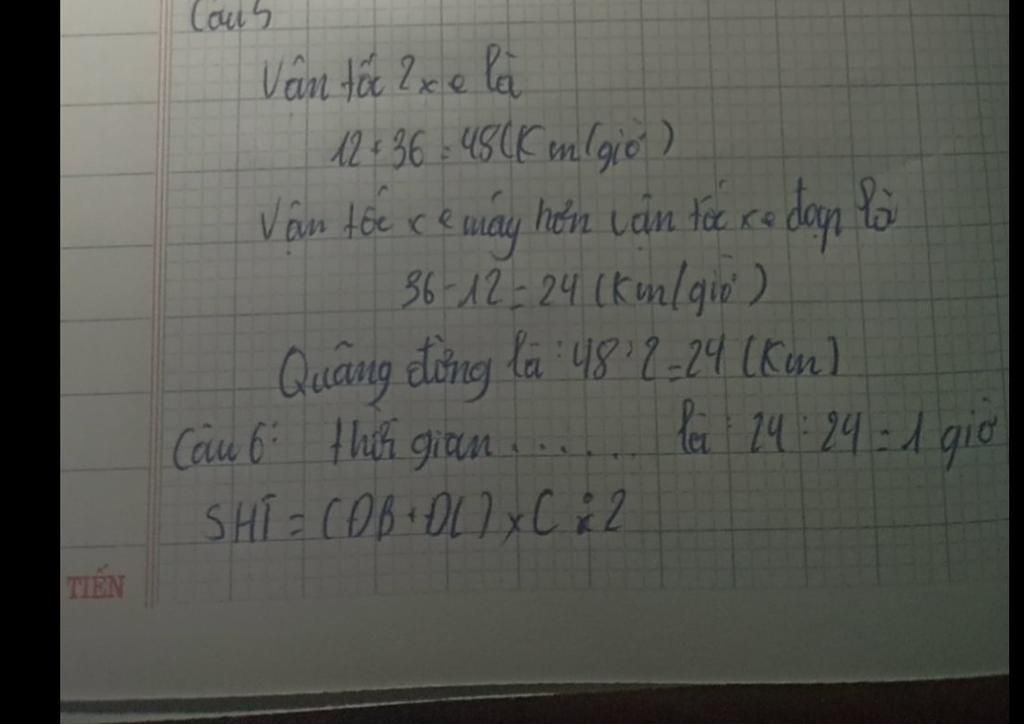 Câu 5
Vân tốc 2 xe là
12 + 36 = 48 (Km/giờ)
Vận tốc xe máy hơn vận tốc xe đạp là
36 - 12 = 24 (Km/giờ)
Quãng đờng là : 48 : 2 = 24 (Km)
Câu 6: thời gian ...... là : 24 : 24 = 1 giờ
SHT = (ĐB + ĐL) x C : 2
TIẾN